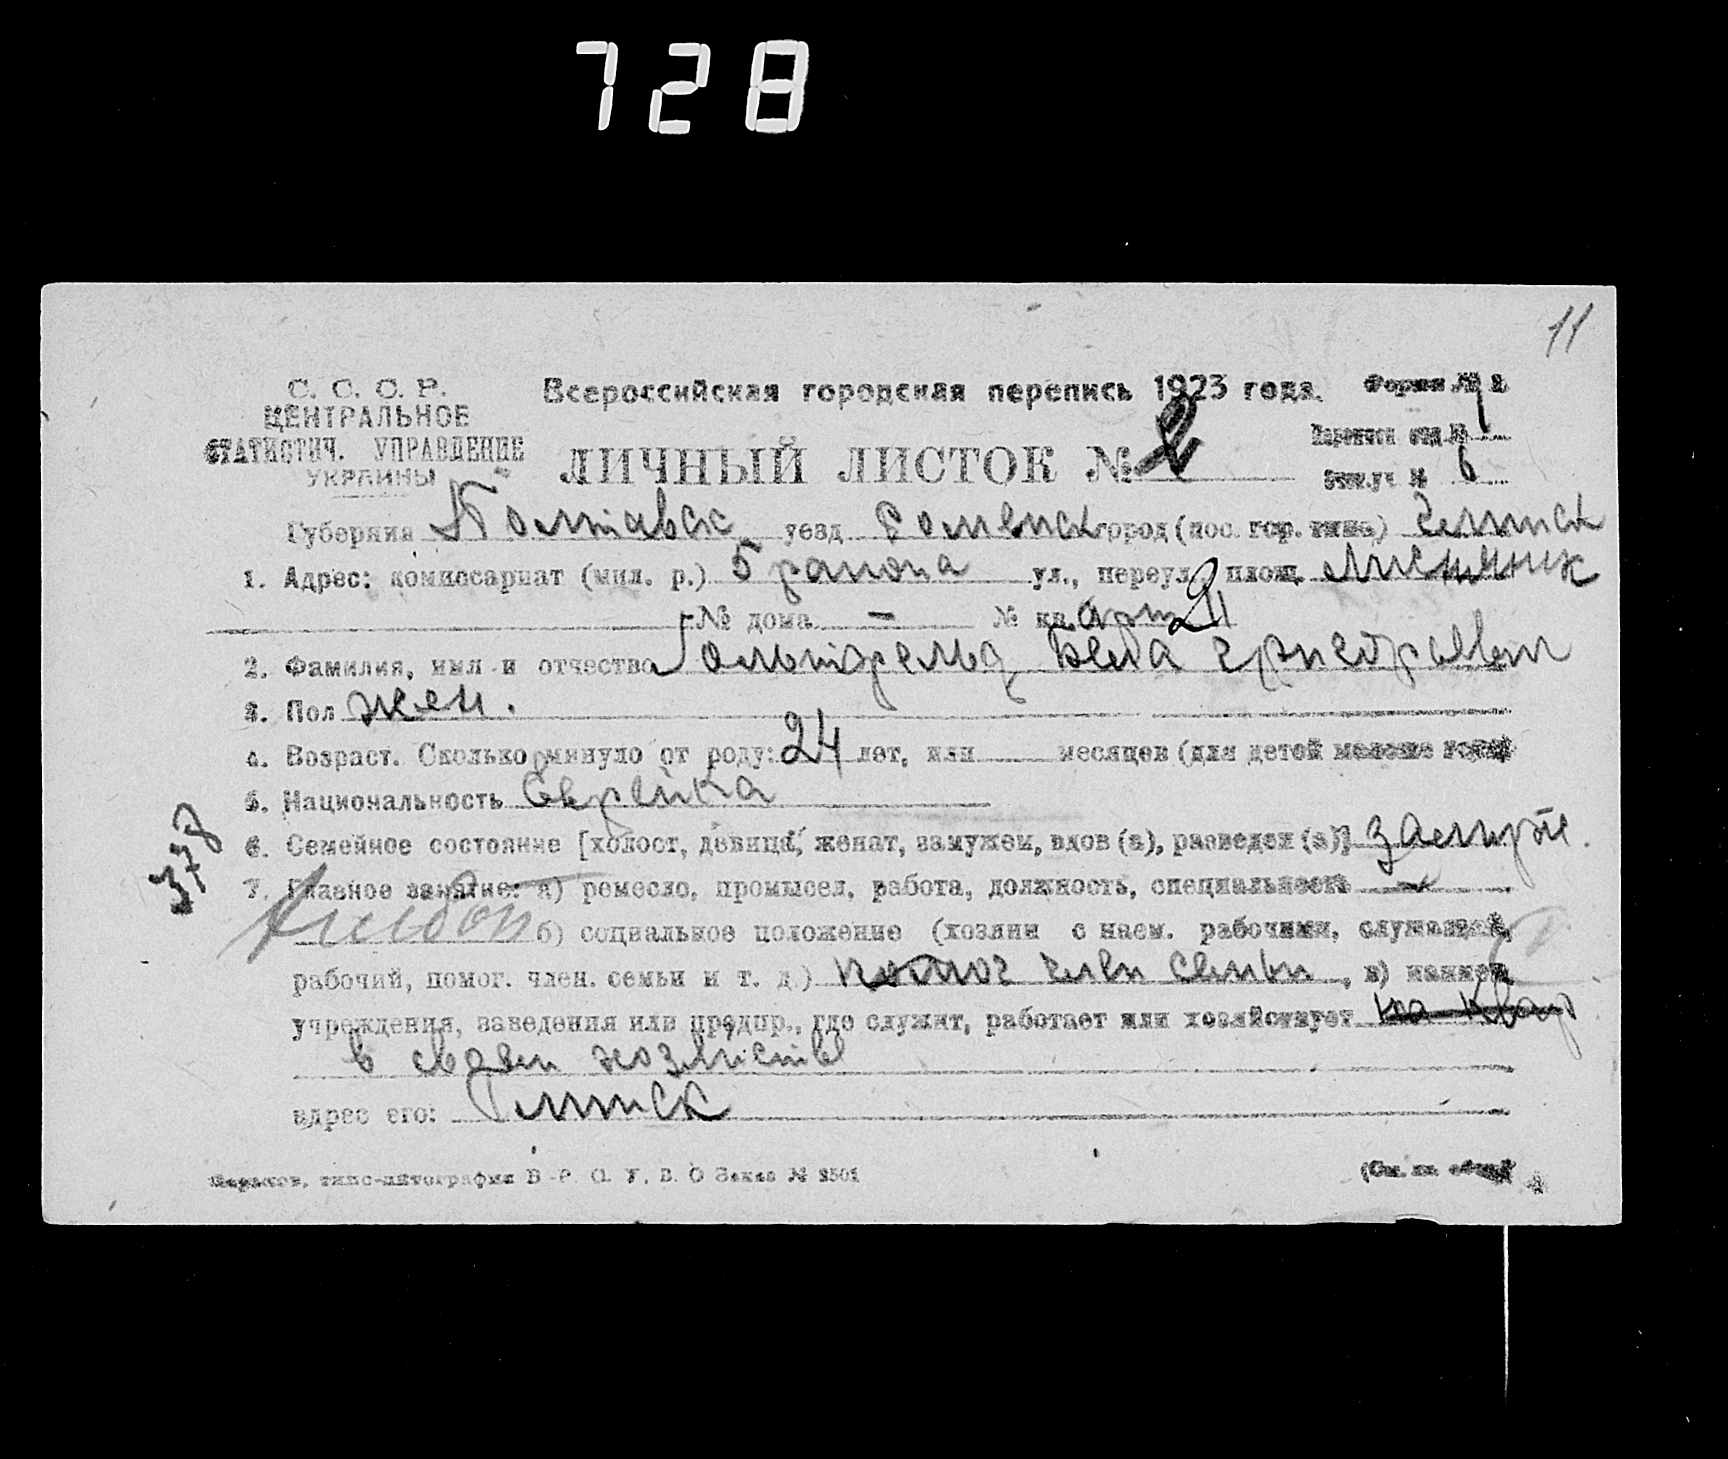 728
11
С. С. С. Р.
ЦЕНТРАЛЬНОЕ
СТАТИСТИЧ. УПРАВЛЕНИЕ
УКРАИНЫ
Всероссийская городская перепись 1923 года.
Форма № 2
ЛИЧНЫЙ ЛИСТОК № 2
отд. № 1
№ 6
Губерния Полтавск уезд Роменск город (пос. гор. типа) Глинск
1. Адрес: комиссариат (мил. р.) 5 района ул., переул., площ.
№ дома – № кв.
2. Фамилия, имя и отчество Гольдфельд
3. Пол жен.
4. Возраст. Сколько минуло от роду: 24 лет, или месяцев (для детей моложе года)
5. Национальность Еврейка
6. Семейное состояние [холост, девица, женат, замужем, вдов (а), разведен (а)] замуж.
7. Главное занятие: а) ремесло, промысел, работа, должность, специальность –
б) социальное положение (хозяин с наем. рабочими, служащий,
рабочий, помог. член. семьи и т. д.) помог член семьи, в) наимен.
учреждения, заведения или предпр., где служит, работает или хозяйствует
в своем хозяйстве
адрес его: Глинск
378
Харьков, типо-литография В. Р. О. У. В. О Заказ № 2501
(См. на обор.)